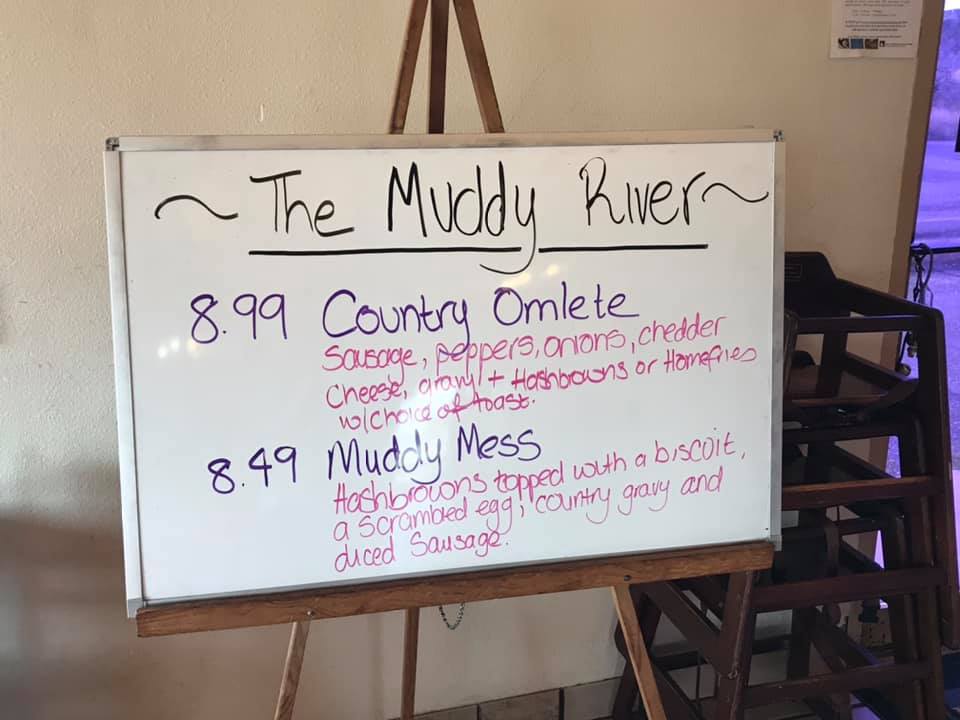 ~ The Muddy River ~
8.99 Country Omlete
Sausage, peppers, onions, chedder
Cheese, gravy + Hashbrowns or Homefries
w/choice of toast.
8.49 Muddy Mess
Hashbrowns topped with a biscuit,
a scrambled egg, country gravy and
diced Sausage.